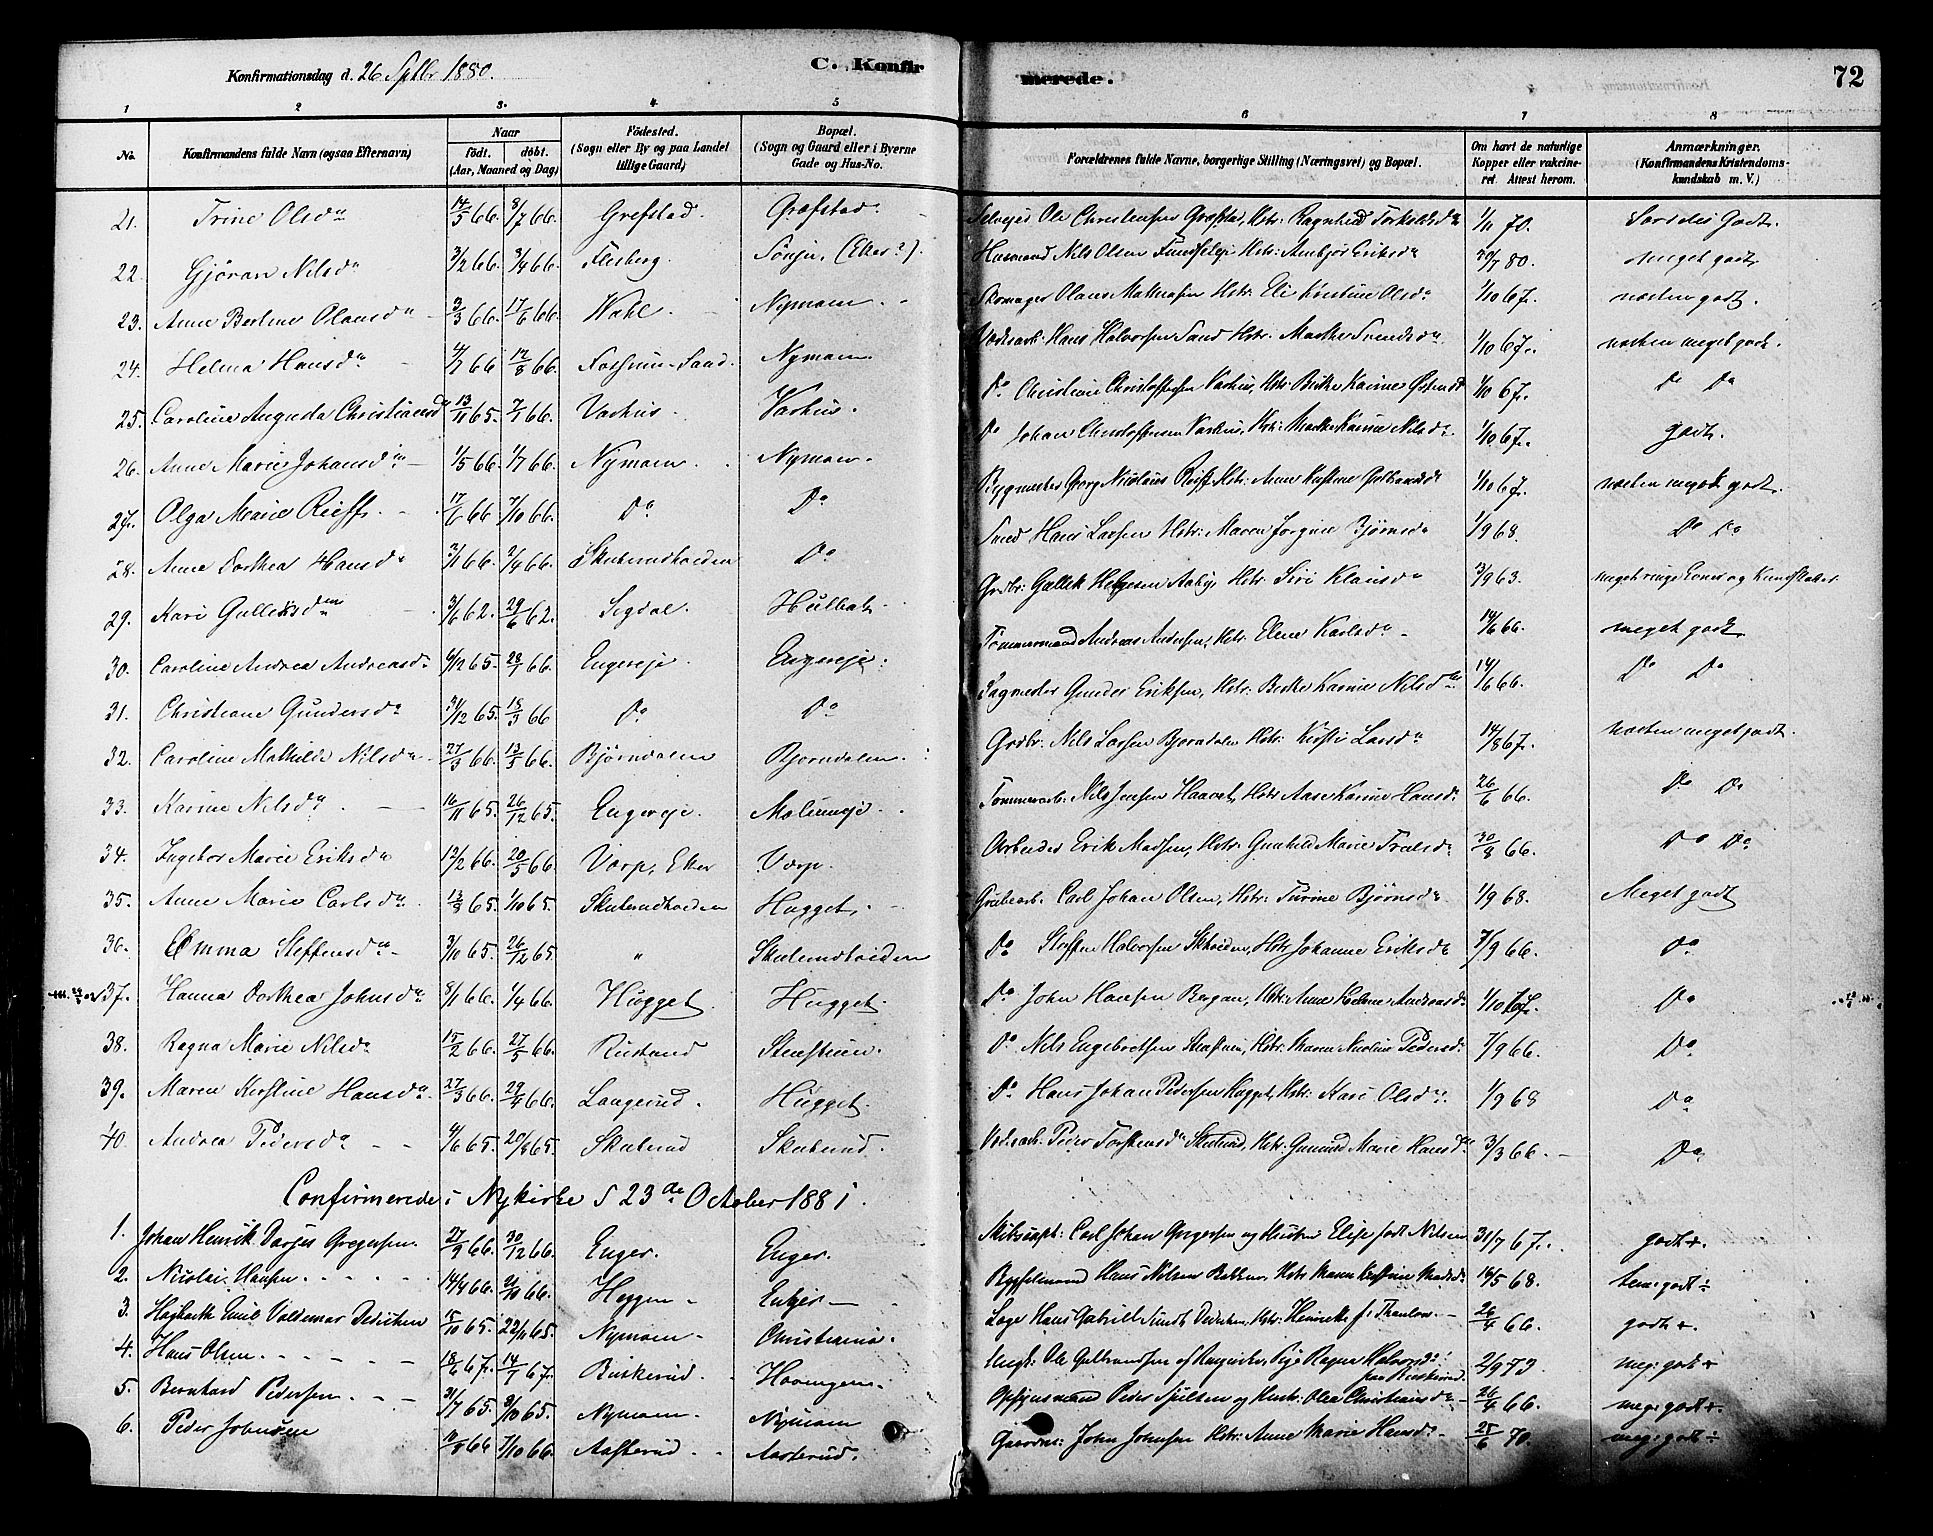 Konfirmationsdag d. 26 Septbr 1880. C. Konfirmerede. 72
1 2 3. 4. 5 6 7 8
No. Konfirmandens fulde Navn (ogsaa Efternavn) Naar født. døbt. (Aar, Maaned og Dag) Födested. (Sogn eller By og paa Landet tillige Gaard) Bopæl. (Sogn og Gaard eller i Byerne Gade og Hus-No. Forældrenes fulde Navne, borgerlige Stilling (Næringsvei) og Bopæl. Om havt de naturlige Kopper eller vakcineret. Attest herom. Anmærkninger. (Konfirmandens Kristendomskundskab m. V.)
21. Trine Olsda 14/5 66. 8/7 66. Grefstad. Græfstad. Selveier Ole Christensen Græfstad, Hstr: Ragnhild Torkeldsda 1/11 70. Særdeles godt.
22. Gjøran Nilsda 3/2 66. 3/4 66. Flesberg. Sönju, (Eker?). Husmand Nils Olsen Hstr: Anbjør Eriksda 30/7 80. Meget godt
23. Anne Berline Olausda 3/3 66. 17/6 66. Nymoen. Skomager Olaus Mathiasen Hstr: Eli Kirstine Olsda 1/10 67. næsten godt.
24. Helma Hansda 4/7 66 12/8 66. Nymoen. Hans Halvorsen Sand Hstr: Marthe Svendsda 1/10 67. næsten meget godt.
25. Caroline Augusta Christiansda 13/11 65. 7/1 66. Varhus. Varhus. Do Christian Christophersen Varhus, Hstr: Berthe Karine 1/10 67. Do Do
26. Anne Marie Johansda 1/5 66. 1/7 66. Nymoen. Nymoen. Do Johan Christophersen Varhus, Hstr: Marthe Karine Nilsda 1/10 67. godt.
27. Olga Marie Reiff. 17/6 66 7/10 66. Do Do Bygmester Georg Nicolaus Reiff Hstr: Anne Kirstine Gulbrandsda 1/10 67. næsten meget godt.
28. Anne Dorthea Hansda 2/11 66. 2/4 66. Skuterudhoeden Do Smed Hans Larsen Hstr: Maren Jørgine Bjørnsda 1/9 68. Do Do
29. Kari Gulleksda 3/6 62. 29/6 62. Sigdal. Hulbak. Grdbr: Gullek Helgesen Aaby, Hstr: Siri Klausda 3/9 63. meget ringe Evner og Kundskaber
30. Caroline Andrea Andreasda 6/12 65. 28/1 66. Engereje. Engereje. Tømmermand Andreas Andersen, Hstr: Elene Karlsda 14/6 66. meget godt
31. Christiane Gundersda 31/12 65. 18/3 66 Do Do Sagmester Gunder Eriksen, Hstr: Berthe Karine Nilsda 14/6 66. Do Do
32. Caroline Mathilde Nilsda 27/3 66. 13/5 66. Bjørndalen Bjørndalen. Grdbr. Nils Larsen Bjørndalen Hstr: Kirsti Larsda 14/8 67. næsten meget godt.
33. Karine Nilsda 16/11 65. 26/12 65. Engereje. Moluneje. Tømmerarb. Nils Jensen Haavet, Hstr: Aase Karine Hansda 26/6 66. Do Do
34. Ingebor Marie Eriksda 12/2 66. 20/5 66. Vorp, Eker Værp. Arbeider Erik Madsen, Hstr: Gunhild Marie Truelsda 30/8 66. Do Do
35. Anne Marie Carlsda 13/9 65. 1/10 65. Skuterudhoeden Hugget. Grubearb. Carl Johan Olsen, Hstr: Turine Bjørnsda 1/9 68. Meget godt
36. Emma Steffensda 3/10 65. 26/12 65. " Skuterudhoeden Do Steffen Halvorsen Skhoeden, Hstr: Johanne Eriksda 7/9 66. Do
37. Hanna Dorthea Johnsda 8/1 66. 1/4 66. Hugget. Hugget. Do John Hansen Bergan, Hstr: Anne Helene Andreasda 1/10 67. Do
38. Ragna Marie Nilsda 15/2 66. 27/5 66. Rustand Stenstuen. Do Nils Engebretsen Stenstuen, Hstr: Maren Nicoline Pedersda 7/9 66. Do
39. Maren Kirstine Hansda 27/3 66. 29/4 66. Langerud. Hugget. Do Hans Johan Pedersen Hugget, Hstr: Kari Olsda 1/9 68 Do
40. Andrea Pedersda 4/6 65. 20/8 65. Skuterud Skuterud. Peder Torstensda Skuterud, Hstr: Gunild Marie Hansda 3/3 66. Do
Confirmerede i Nykirke d 23de October 1881.
1. Johan Henrik Gregersen. 27/9 66. 30/12 66. Enger. Enger. Carl Johan Gregersen og Hustru Elise født Nilsen 31/7 67. godt+.
2. Nicolai Hansen 14/4 66. 21/10 66. Heggen Enger Hans Nilsen Bakken, Hstr: Maren Kirstine Madsda 16/5 68. godt÷
3. Hagbarth Emil Valdemar Dedichen 15/10 65. 22/11 65. Nymoen. Christiania. Læge Hans Gabriel Sundt Dedichen, Hstr: Henrikke f. Thaulow. 26/4 66. godt+.
4. Hans Olsen. 18/6 67. 14/7 67. Buskerud. Hovengen. Ungk: Ole Gulbrandsen af Ringerike, Pige Ragne Halvorsda fra Buskerud. 2/9 73 meg: godt+
5. Bernhard Pedersen 31/7 65. 8/10 65. Nymoen. Nymoen Opsynsmand Peder og Hustr: Olea Christiansda 26/4 66. meg: godt+.
6. Peder Johnsen 11/8 66 7/10 66. Aasterud Aasterud. Gaardm: John Johnsen Hstr: Anne Marie Hansda 25/6 70. meg: godt÷